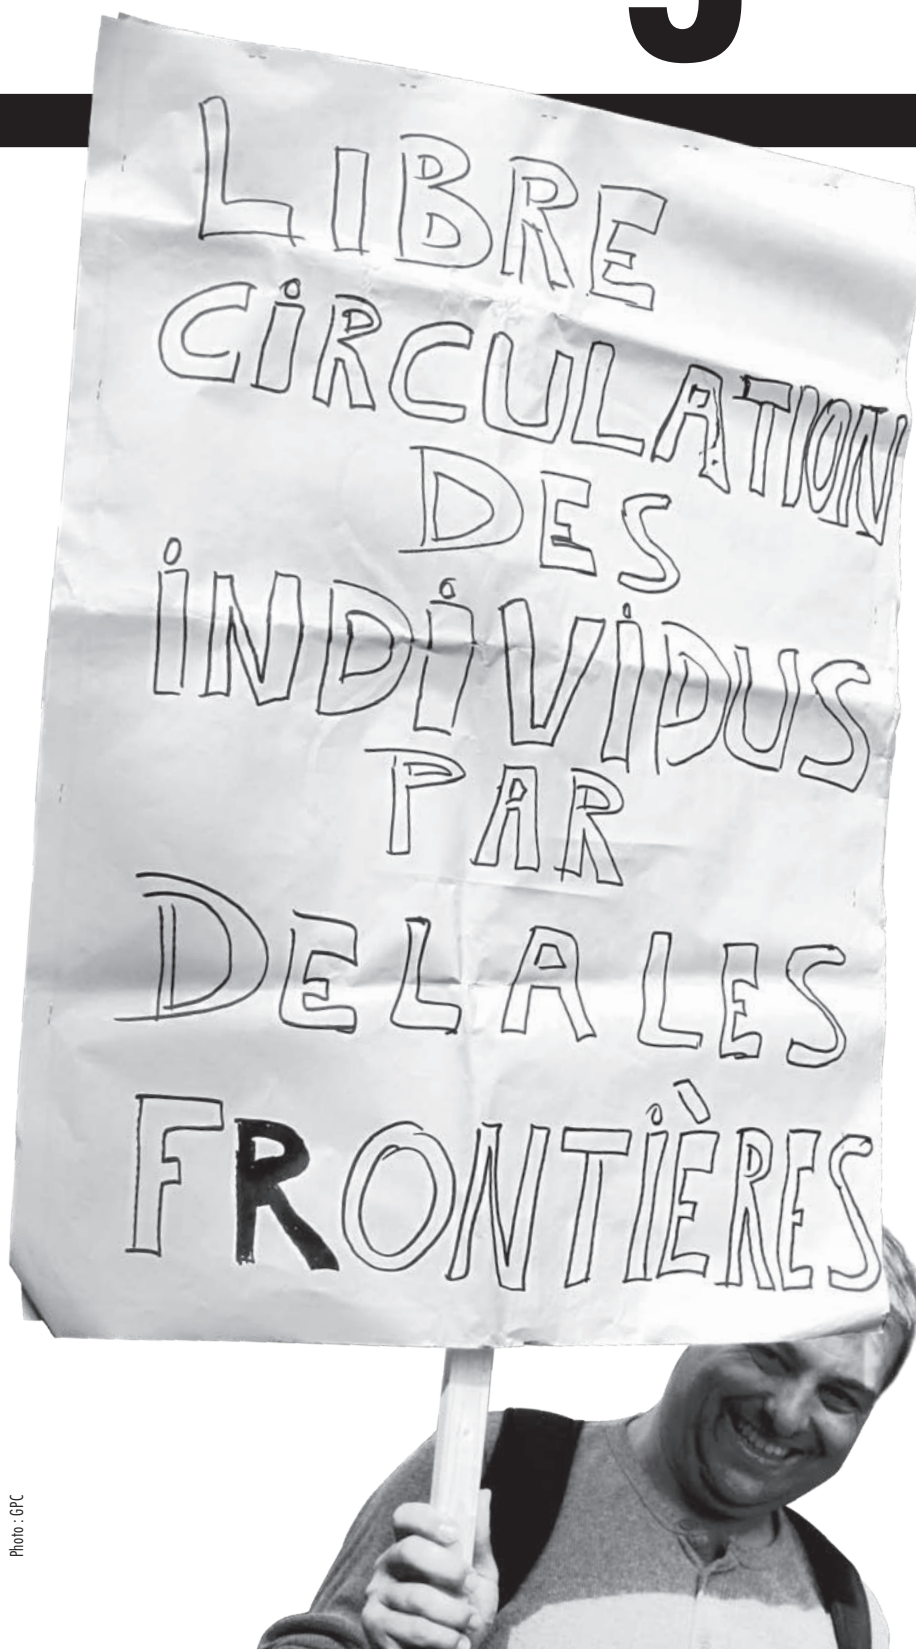 LIBRE
CIRCULATION
DES
INDIVIDUS
PAR
DELA LES
FRONTIÈRES
Photo : GPC